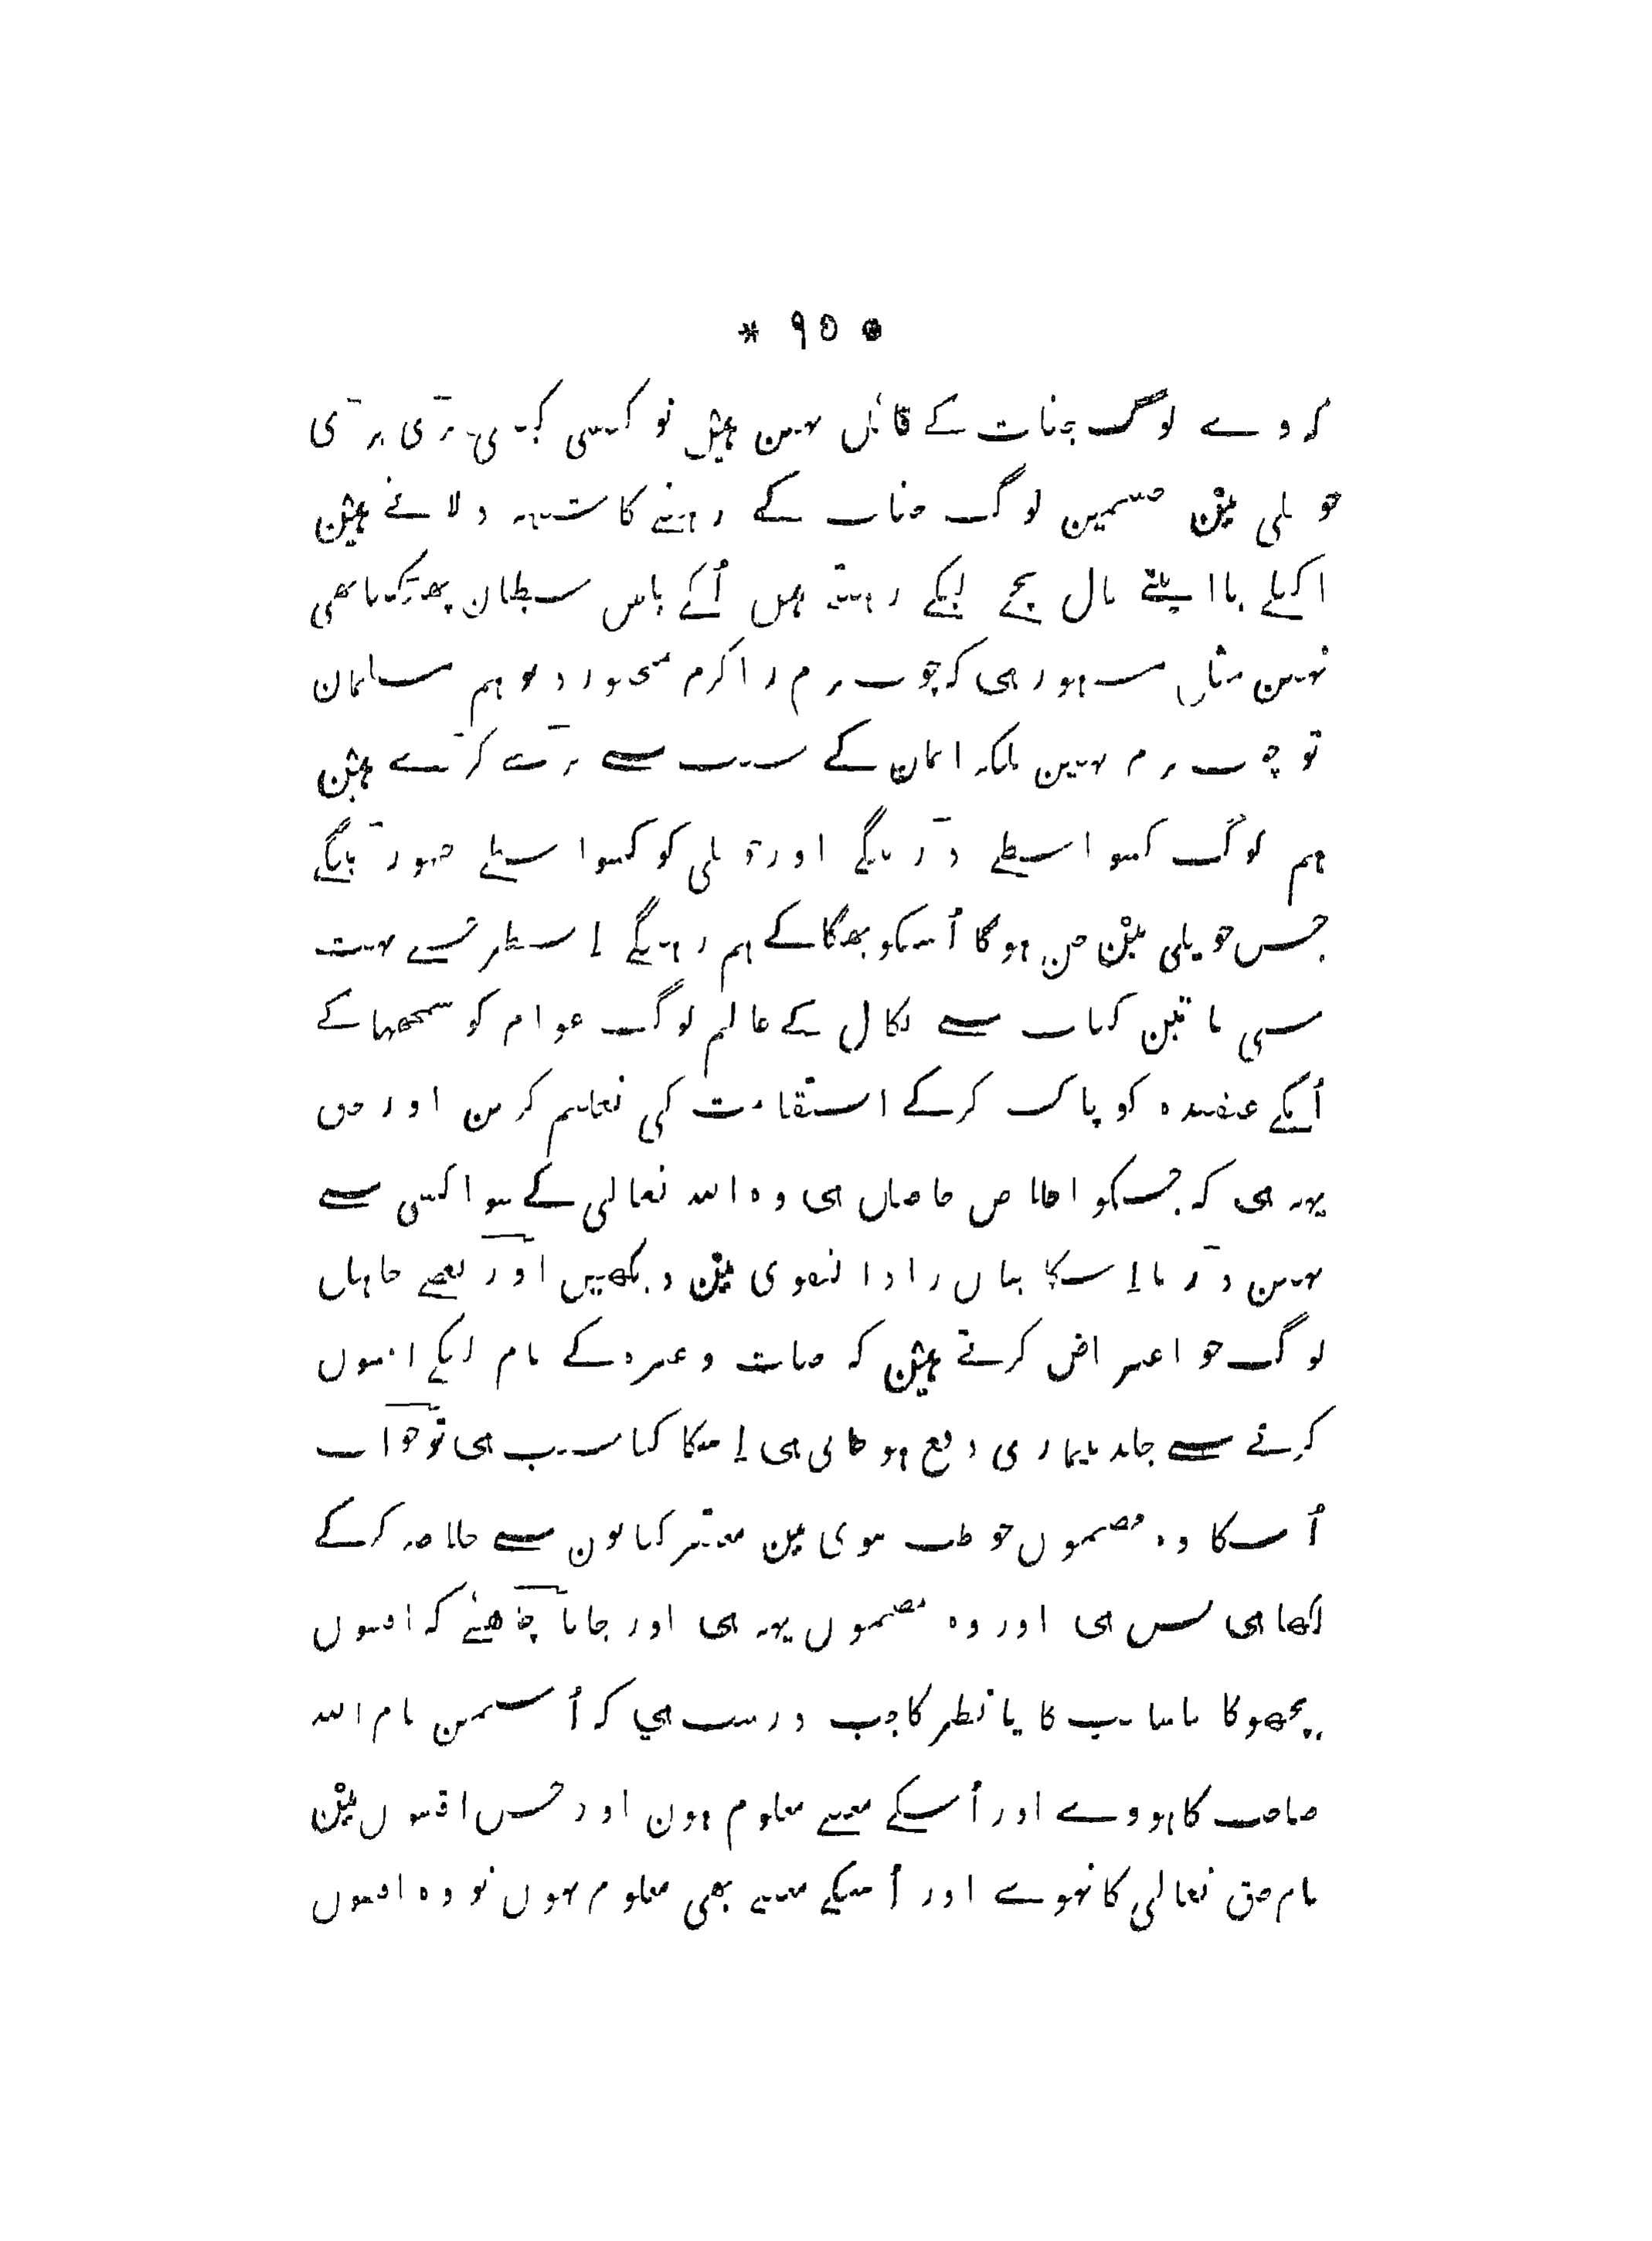 * ۹۵ *
کہ وے لوگ جنات کے قائل نہین ہین تو کیسی کیسی بڑی بڑی
حویلی مین جسمین لوگ جنات کے رہنے کا شبہہ دلاتے ہین
اکیلے یا اپنے بال بچے لیکے رہتے ہین اُنکے پاس شیطان پھٹکتا بھی
نہین مثل مشہور ہی کہ چوب نرم را کرم میخورد سو ہم مسلمان
تو چوب نرم نہین بلکہ ایمان کے سبب سے بڑے کڑے ہین
ہم لوگ کسواسطے ڈرینگے اور حویلی کو کسواسطے چھوڑینگے
جس حویلی مین جن ہوگا اُسکو بھگا کے ہم رہینگے اِسطرحسے بہت
سی باتین کتاب سے نکال کے عالم لوگ عوام کو سمجھا کے
اُنکے عقیدہ کو پاک کرکے استقامت کی تعلیم کرین اور حق
یہہ ہی کہ جسکو اخلاص حاصل ہی وہ اللہ تعالی کے سوا کسی سے
نہین ڈرتا اِسکا بیان زاد التقوی مین دیکھین اور بعضے جاہل
لوگ جو اعتراض کرتے ہین کہ جنات وغیرہ کے نام لیکے افسون
کرنے سے جلد بیماری دفع ہو جاتی ہی اِسکا کیا سبب ہی تو جواب
اُسکا وہ مضمون جو طب نبوی مین معتبر کتابون سے خلاصہ کرکے
لکھا ہی بس ہی اور وہ مضمون یہہ ہی اور جانا چاہئے کہ افسون
بچھو کا یا سانپ کا یا نظر کا جب درست ہی کہ اُسمین نام اللہ
صاحب کا ہووے اور اُسکے معنے معلوم ہون اور جس افسون مین
نام حق تعالی کا نہووے اور اُسکے معنے بھی معلوم نہون تو وہ افسون